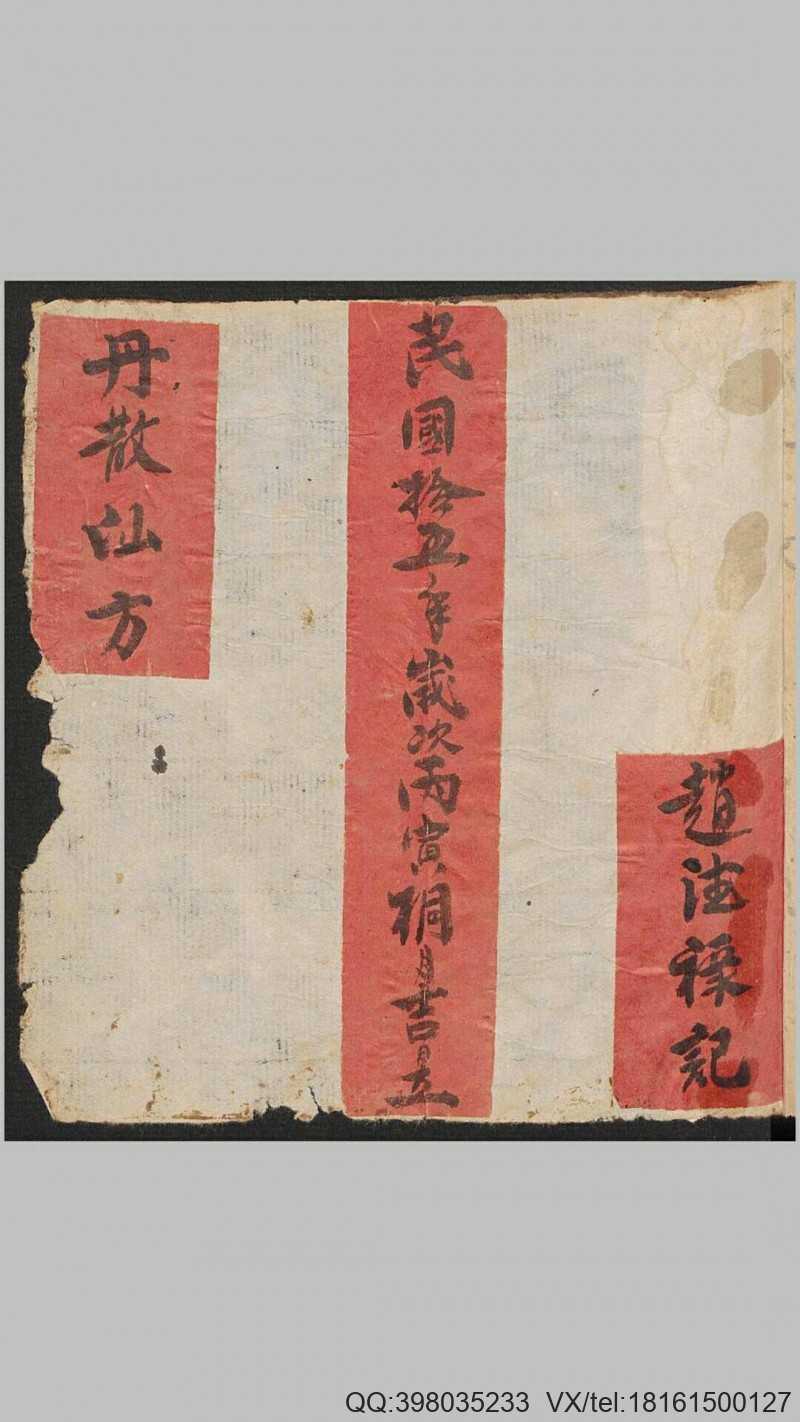 趙法祿記
民國拾五年歲次丙寅桐月吉日立
丹散仙方
QQ:398035233 VX/tel:18161500127